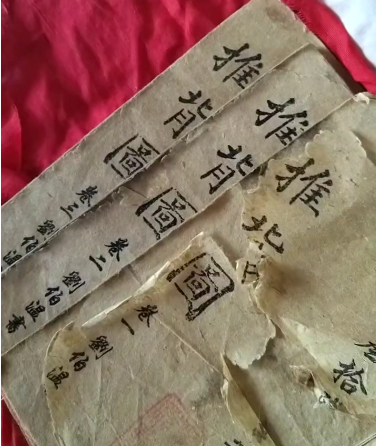 推背圖
卷三 劉伯溫
推背圖
卷二 劉伯溫書
推背圖
卷一 劉伯溫
拾